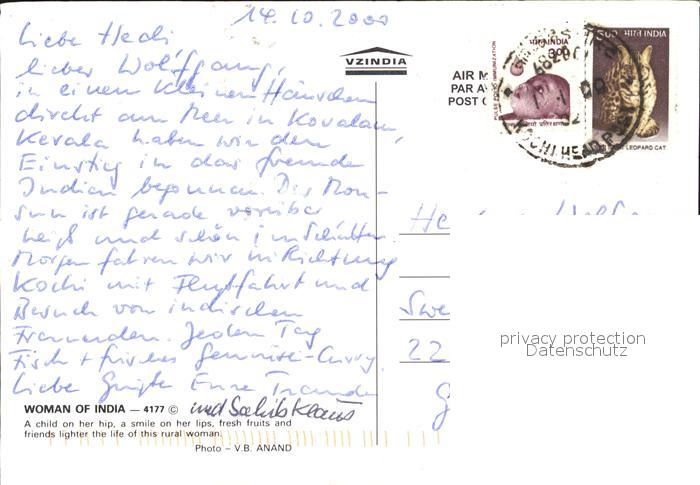 14.10.2000
Liebe Hedi
lieber Wolfgang,
in einem kleinen Häuschen
direkt am Meer in Kovalam,
Kerala haben wir den
Einstieg in das fremde
Indien begonnen. Der Mon-
sun ist gerade vorüber
heiß und schön im Schatten.
Morgen fahren wir in Richtung
Kochi mit Flußfahrt und
Besuch von indischen
Freunden. Jeden Tag
Fisch + frisches Gemüse-Curry.
Liebe Grüße Eure
und Sahib Klaus
WOMAN OF INDIA — 4177 ©
A child on her hip, a smile on her lips, fresh fruits and
friends lighter the life of this rural woman.
Photo – V.B. ANAND
VZINDIA
AIR M
PAR A
POST C
भारत INDIA
300
PULSE POLIO IMMUNIZATION
500
भारत INDIA
LEOPARD CAT
KOCHI HEAD P
He
Swe
22
G
privacy protection
Datenschutz